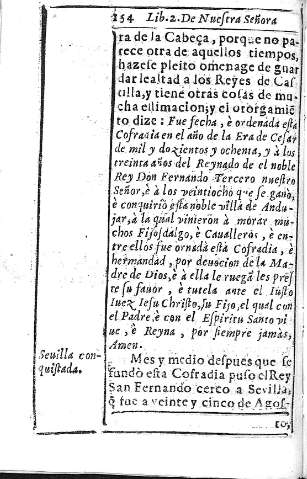 254 Lib. 2. De Nuestra Señora
tra de la Cabeça, porque no pa-
rece otra de aquellos tiempos,
hazese pleito omenage de guar
dar lealtad a los Reyes de Cas-
tilla, y tiene otras cosas de mu-
cha estimacion; y el otorgamiē
to dize: Fue fecha, è ordenada esta
Cofradia en el año de la Era de Cesar
de mil y dozientos y ochenta, y à los
treinta años del Reynado de el noble
Rey Don Fernando Tercero nuestro
Señor, è à los veintiocho que se ganò,
è conquiriò esta noble villa de Andu-
jar, à la qual vinieron à morar mu-
chos Fijosdalgo, è Cavalleros, è en-
tre ellos fue ornada està Cofradia, è
hermandad, por devocion de la Ma-
dre de Dios, è à ella le ruega les pres-
te su favor, è tutela ante el Iusto
Iuez Iesu Christo, su Fijo, el qual con
el Padre, è con el Espiritu Santo vi
ue, è Reyna, por siempre jamàs,
Amen.
Sevilla con-
quistada.
Mes y medio despues que se
fundò esta Cofradia puso el Rey
San Fernando cerco a Sevilla,
q̃ fue a veinte y cinco de Agos-
to,